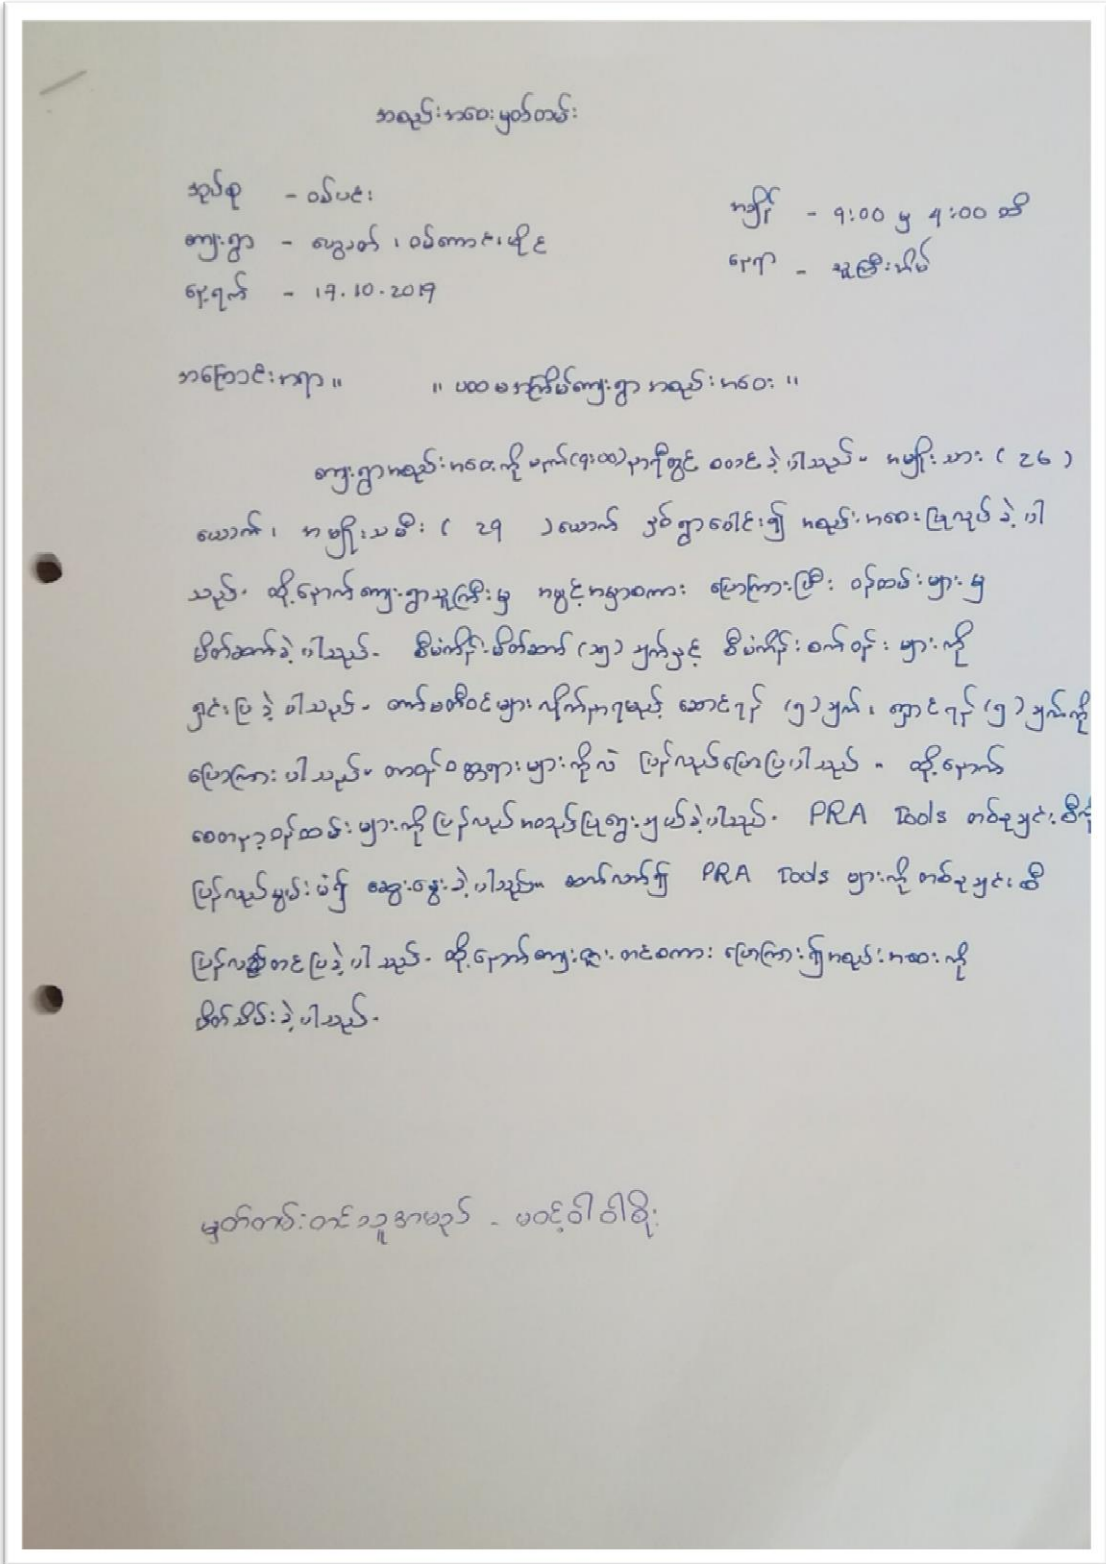 အစည်းအဝေးမှတ်တမ်း
အုပ်စု - ဝမ်ပင်း
အချိန် - ၅:၀၀ မှ ၇:၀၀ ထိ
ကျေးရွာ - ဝမ်ကောင်းမိုင်
နေရာ - သူကြီးအိမ်
နေ့ရက် - 17.10.2019
အကြောင်းအရာ။ " ပထမအကြိမ်ကျေးရွာ အစည်းအဝေး "
ကျေးရွာအစည်းအဝေးကို နာရီတွင် စတင်ခဲ့ပါသည်။ အမျိုးသား ( ၁၆ )
ယောက်၊ အမျိုးသမီး ( ၁၅ ) ယောက် နှစ်ရွာပေါင်း၍ အစည်းအဝေးပြုလုပ်ခဲ့ပါ
သည်။ ထို့နောက်ကျေးရွာသူကြီးမှ အဖွင့်အမှာစကား ပြောကြားပြီး ဝန်ထမ်းများမှ
မိတ်ဆက်ခဲ့ပါသည်။ စီမံကိန်းမိတ်ဆက် ချက်နှင့် စီမံကိန်းစက်ဝန်းများကို
ရှင်းပြခဲ့ပါသည်။ ကော်မတီဝင်များလိုက်နာရမည့် ဆောင်ရန် (၅) ချက်၊ ရှောင်ရန် (၅) ချက်ကို
ပြောကြားပါသည်။ တာဝန်ဝတ္တရားများကိုလဲ ပြန်လည်ပြောပြပါသည်။ ထို့နောက်
စေတနာ့ဝန်ထမ်းများကို ပြန်လည်အတည်ပြုရွေးချယ်ခဲ့ပါသည်။ PRA Tools တစ်ခုချင်းစီကို
ပြန်လည်မွမ်းမံ၍ ဆွေးနွေးခဲ့ပါသည်။ ဆက်လက်၍ PRA Tools များကို တစ်ခုချင်းစီ
ပြန်လည်တင်ပြခဲ့ပါသည်။ ထို့နောက်ကျေးဇူးတင်စကား ပြောကြား၍ အစည်းအဝေးကို
ပိတ်သိမ်းခဲ့ပါသည်။
မှတ်တမ်းတင်သူအမည် - မဝင့်ဝါဝါစိုး